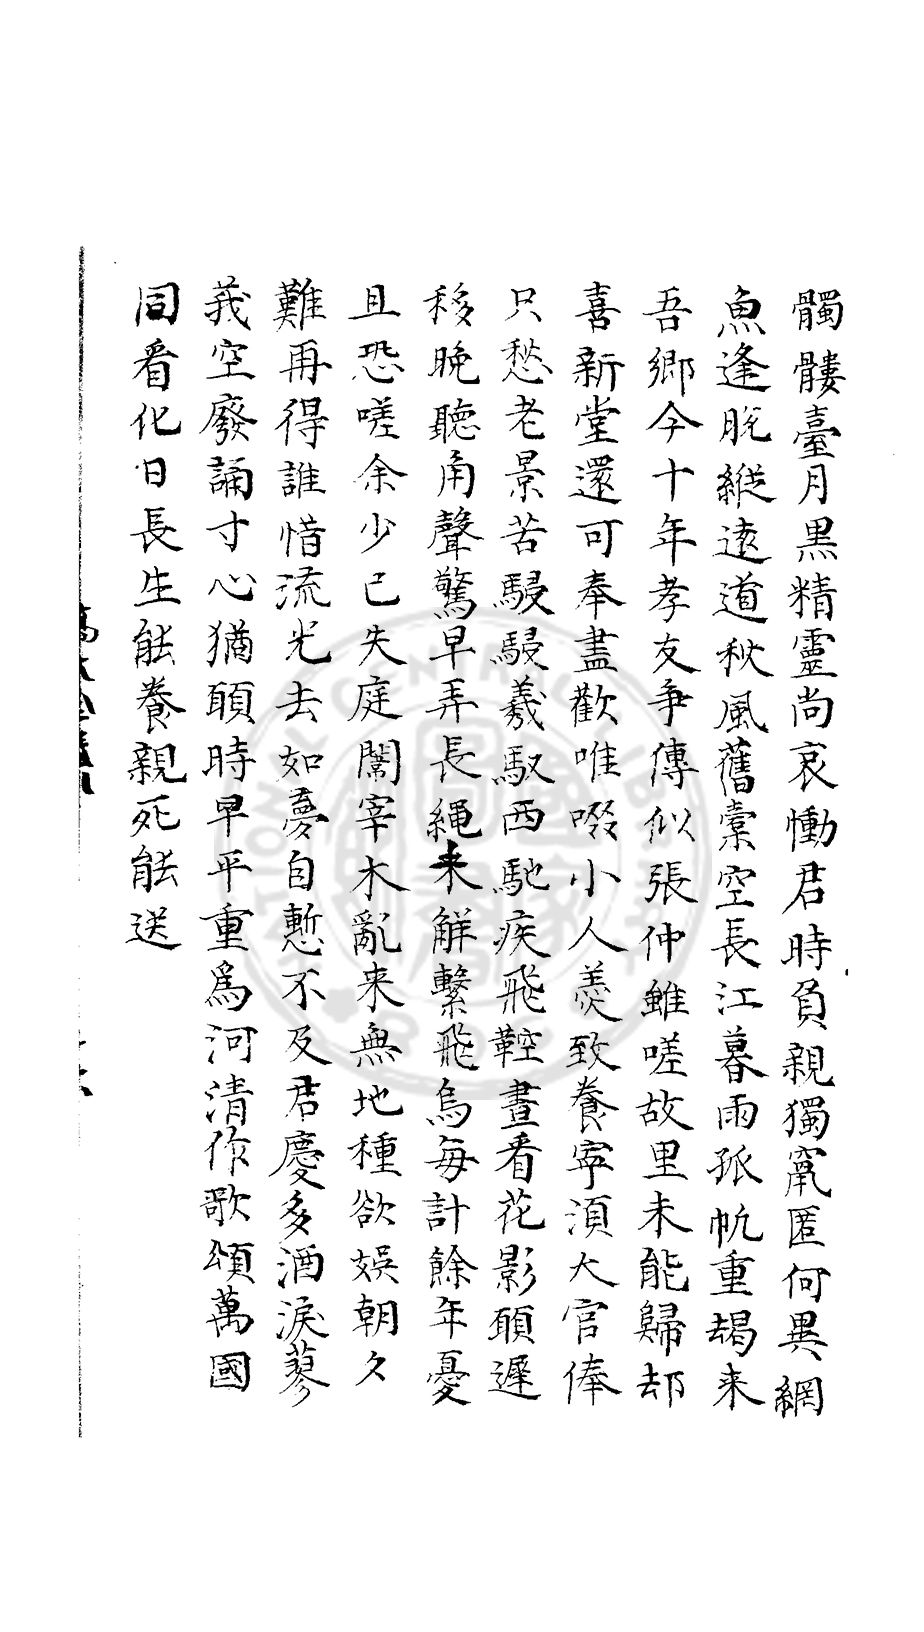 髑髏臺月黒精靈尚哀慟君時負親獨竄匿何異網
魚逢脫縱遠道秋風舊橐空長江暮雨孤帆重朅来
吾鄉今十年孝友争傳似張仲雖嗟故里未能歸却
喜新堂還可奉盡歡唯啜小人羮致養寧湏大官俸
只愁老景苦駸駸羲馭西馳疾飛鞚晝看花影願遲
移晚聽角聲驚早弄長繩来解繫飛烏每計餘年憂
且恐嗟余少已失庭闈宰木亂来無地種欲娛朝夕
難再得誰惜流光去如夢自慙不及君慶多洒淚蓼
莪空廢誦寸心猶願時早平重爲河清作歌頌萬國
同看化日長生能養親死能送